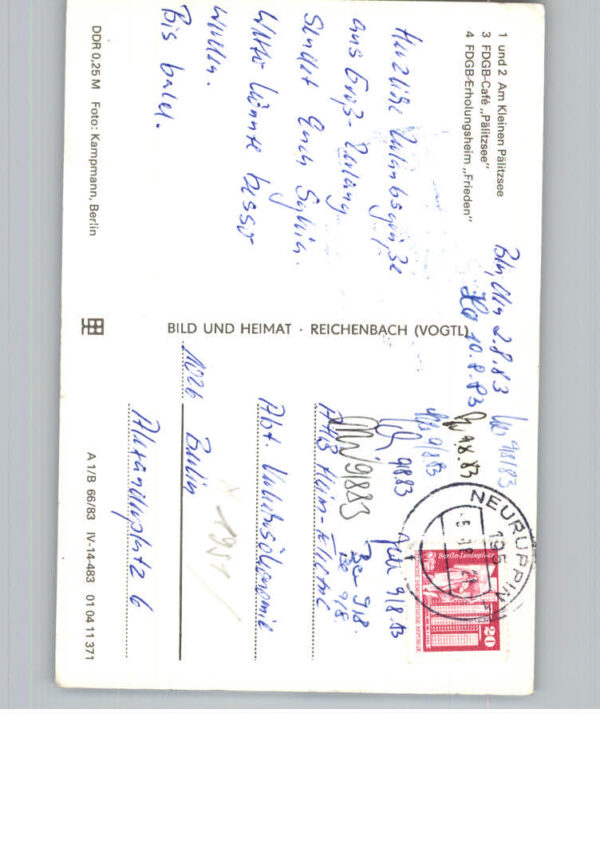 1 und 2 Am Kleinen Pälitzsee
3 FDGB-Café „Pälitzsee"
4 FDGB-Erholungsheim „Frieden"
Herzliche Urlaubsgrüße
aus Groß-Zerlang
sendet Euch Sylvia.
Wetter könnte besser
werden.
Bis bald.
DDR 0,25 M Foto: Kampmann, Berlin
BILD UND HEIMAT · REICHENBACH (VOGTL)
2.8.83
10.8.83
9/8/83
9/8/83
9.8.83
9/8/83
9/8/83
9/8.
9/8.
9/8 83
NEURUPPIN
195
Berlin-Leninplatz
20
AHB
Abt. Valutaökonomie
1026 Berlin
Alexanderplatz 6
A 1/B 66/83 IV-14-483 01 04 11 371